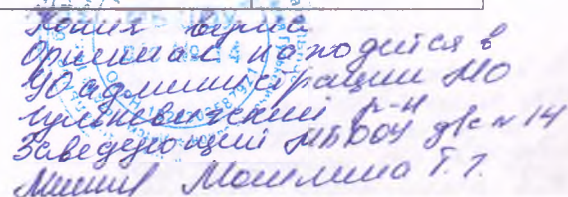 Копия верна
Оригинал находится в
УО администрации МО
Гулькевичский р-н
Заведующий МБДОУ д/с № 14
Т. Г.